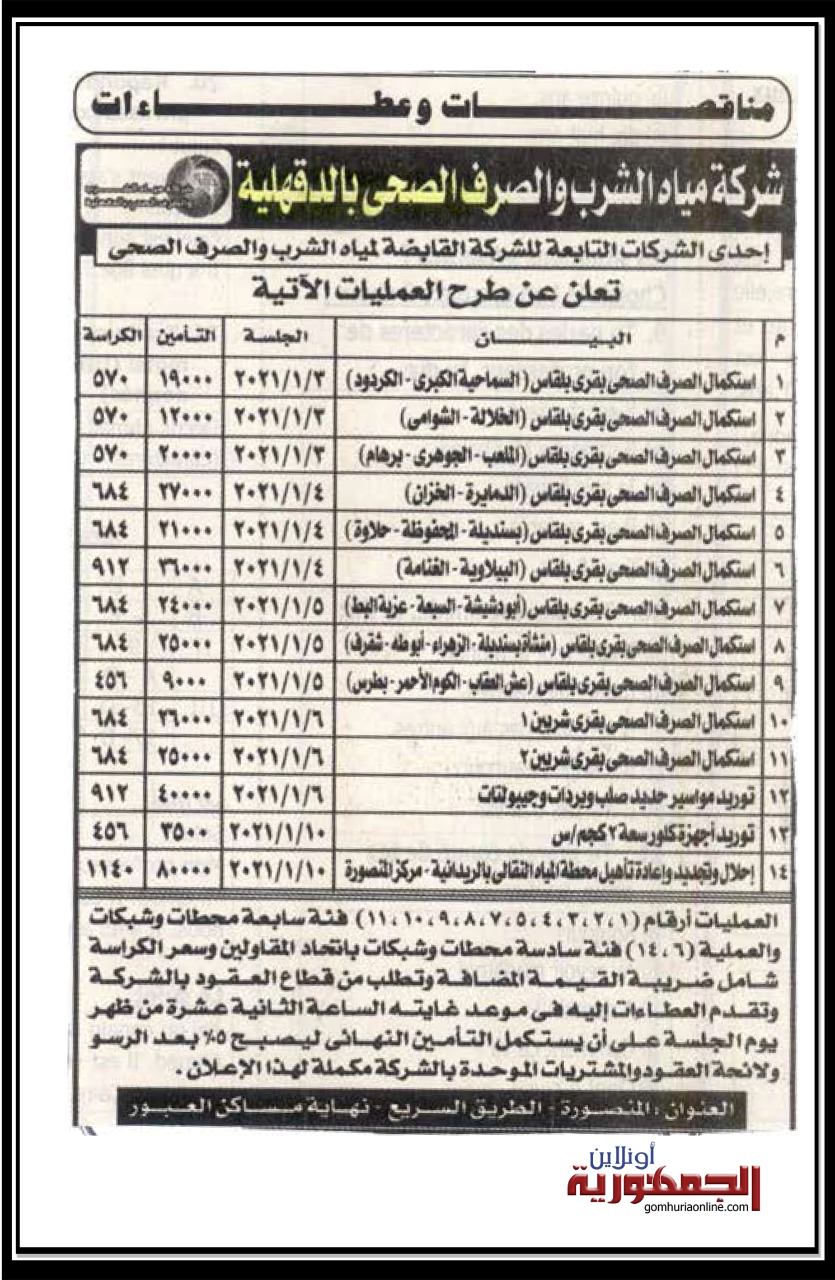 مناقصات وعطاءات
شركة مياه الشرب والصرف الصحى بالدقهلية
إحدى الشركات التابعة للشركة القابضة لمياه الشرب والصرف الصحى
تعلن عن طرح العمليات الآتية
م البيان الجلسة التأمين الكراسة
١ استكمال الصرف الصحى بقرى بلقاس (السماحية الكبرى - الكردود) ٢٠٢١/١/٣ ١٩٠٠٠ ٥٧٠
٢ استكمال الصرف الصحى بقرى بلقاس (الخلالة - الشوامى) ٢٠٢١/١/٣ ١٢٠٠٠ ٥٧٠
٣ استكمال الصرف الصحى بقرى بلقاس (الملعب - الجوهرى - برهام) ٢٠٢١/١/٣ ٢٠٠٠٠ ٥٧٠
٤ استكمال الصرف الصحى بقرى بلقاس (الدمايرة - الخزان) ٢٠٢١/١/٤ ٢٧٠٠٠ ٦٨٤
٥ استكمال الصرف الصحى بقرى بلقاس (بسنديلة - المحفوظة - حلاوة) ٢٠٢١/١/٤ ٢١٠٠٠ ٦٨٤
٦ استكمال الصرف الصحى بقرى بلقاس (البيلاوية - الغنامة) ٢٠٢١/١/٤ ٣٦٠٠٠ ٩١٢
٧ استكمال الصرف الصحى بقرى بلقاس (أبو دشيشة - السبعة - عزبة البط) ٢٠٢١/١/٥ ٢٤٠٠٠ ٦٨٤
٨ استكمال الصرف الصحى بقرى بلقاس (منشأة بسنديلة - الزهراء - أبو طه - شقرف) ٢٠٢١/١/٥ ٢٥٠٠٠ ٦٨٤
٩ استكمال الصرف الصحى بقرى بلقاس (عش العقاب - الكوم الأحمر - بطرس) ٢٠٢١/١/٥ ٩٠٠٠ ٤٥٦
١٠ استكمال الصرف الصحى بقرى شربين ١ ٢٠٢١/١/٦ ٢٦٠٠٠ ٦٨٤
١١ استكمال الصرف الصحى بقرى شربين ٢ ٢٠٢١/١/٦ ٢٥٠٠٠ ٦٨٤
١٢ توريد مواسير حديد صلب وبردات وجيبولتات ٢٠٢١/١/٦ ٤٠٠٠٠ ٩١٢
١٣ توريد أجهزة كلور سعة ٢ كجم/س ٢٠٢١/١/١٠ ٣٥٠٠ ٤٥٦
١٤ إحلال وتجديد وإعادة تأهيل محطة المياه النقالى بالريدانية - مركز المنصورة ٢٠٢١/١/١٠ ٨٠٠٠٠ ١١٤٠
العمليات أرقام (١، ٢، ٣، ٤، ٥، ٧، ٨، ٩، ١٠، ١١) فئة سابعة محطات وشبكات
والعملية (٦، ١٤) فئة سادسة محطات وشبكات باتحاد المقاولين وسعر الكراسة
شامل ضريبة القيمة المضافة وتطلب من قطاع العقود بالشركة
وتقدم العطاءات إليه فى موعد غايته الساعة الثانية عشرة من ظهر
يوم الجلسة على أن يستكمل التأمين النهائى ليصبح ٥٪ بعد الرسو
ولائحة العقود والمشتريات الموحدة بالشركة مكملة لهذا الإعلان .
العنوان : المنصورة - الطريق السريع - نهاية مساكن العبور
أونلاين
الجمهورية
gomhuriaonline.com